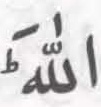 اللّٰهَ ؕ